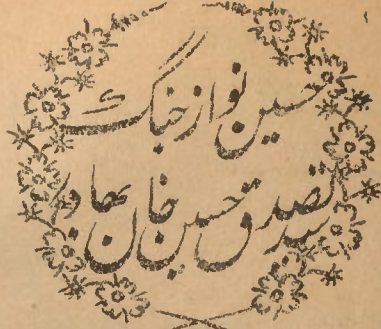 حسین نواز جنگ
سید تصدق حسین خان بهادر